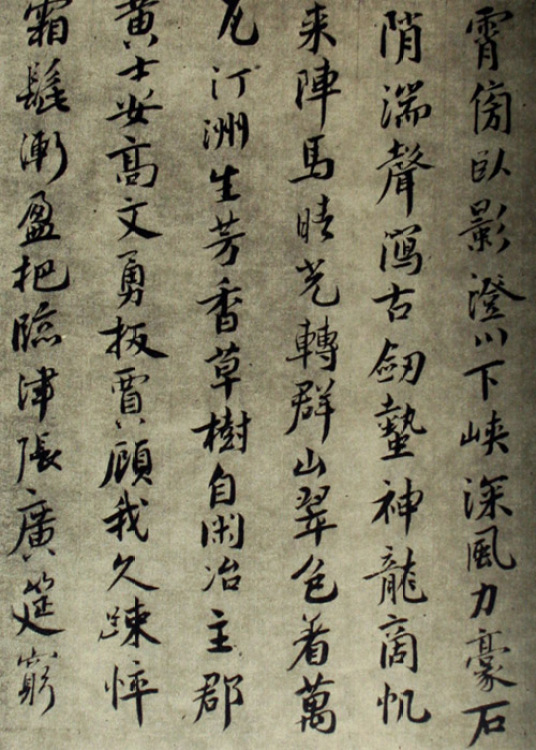 霄傍臥影澄川下峽深風力豪石
陗湍聲瀉古劒蟄神龍商帆
来陣馬晴光轉群山翠色着萬
瓦汀洲生芳香草樹自閑冶主郡
黃士安高文勇扳賈顧我久踈悴
霜髭漸盈把臨津張廣筵窮